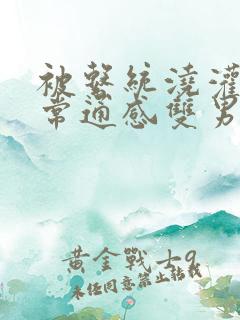 被繫統澆灌
常通感雙男
黃金戰士9
未經同意禁止轉載